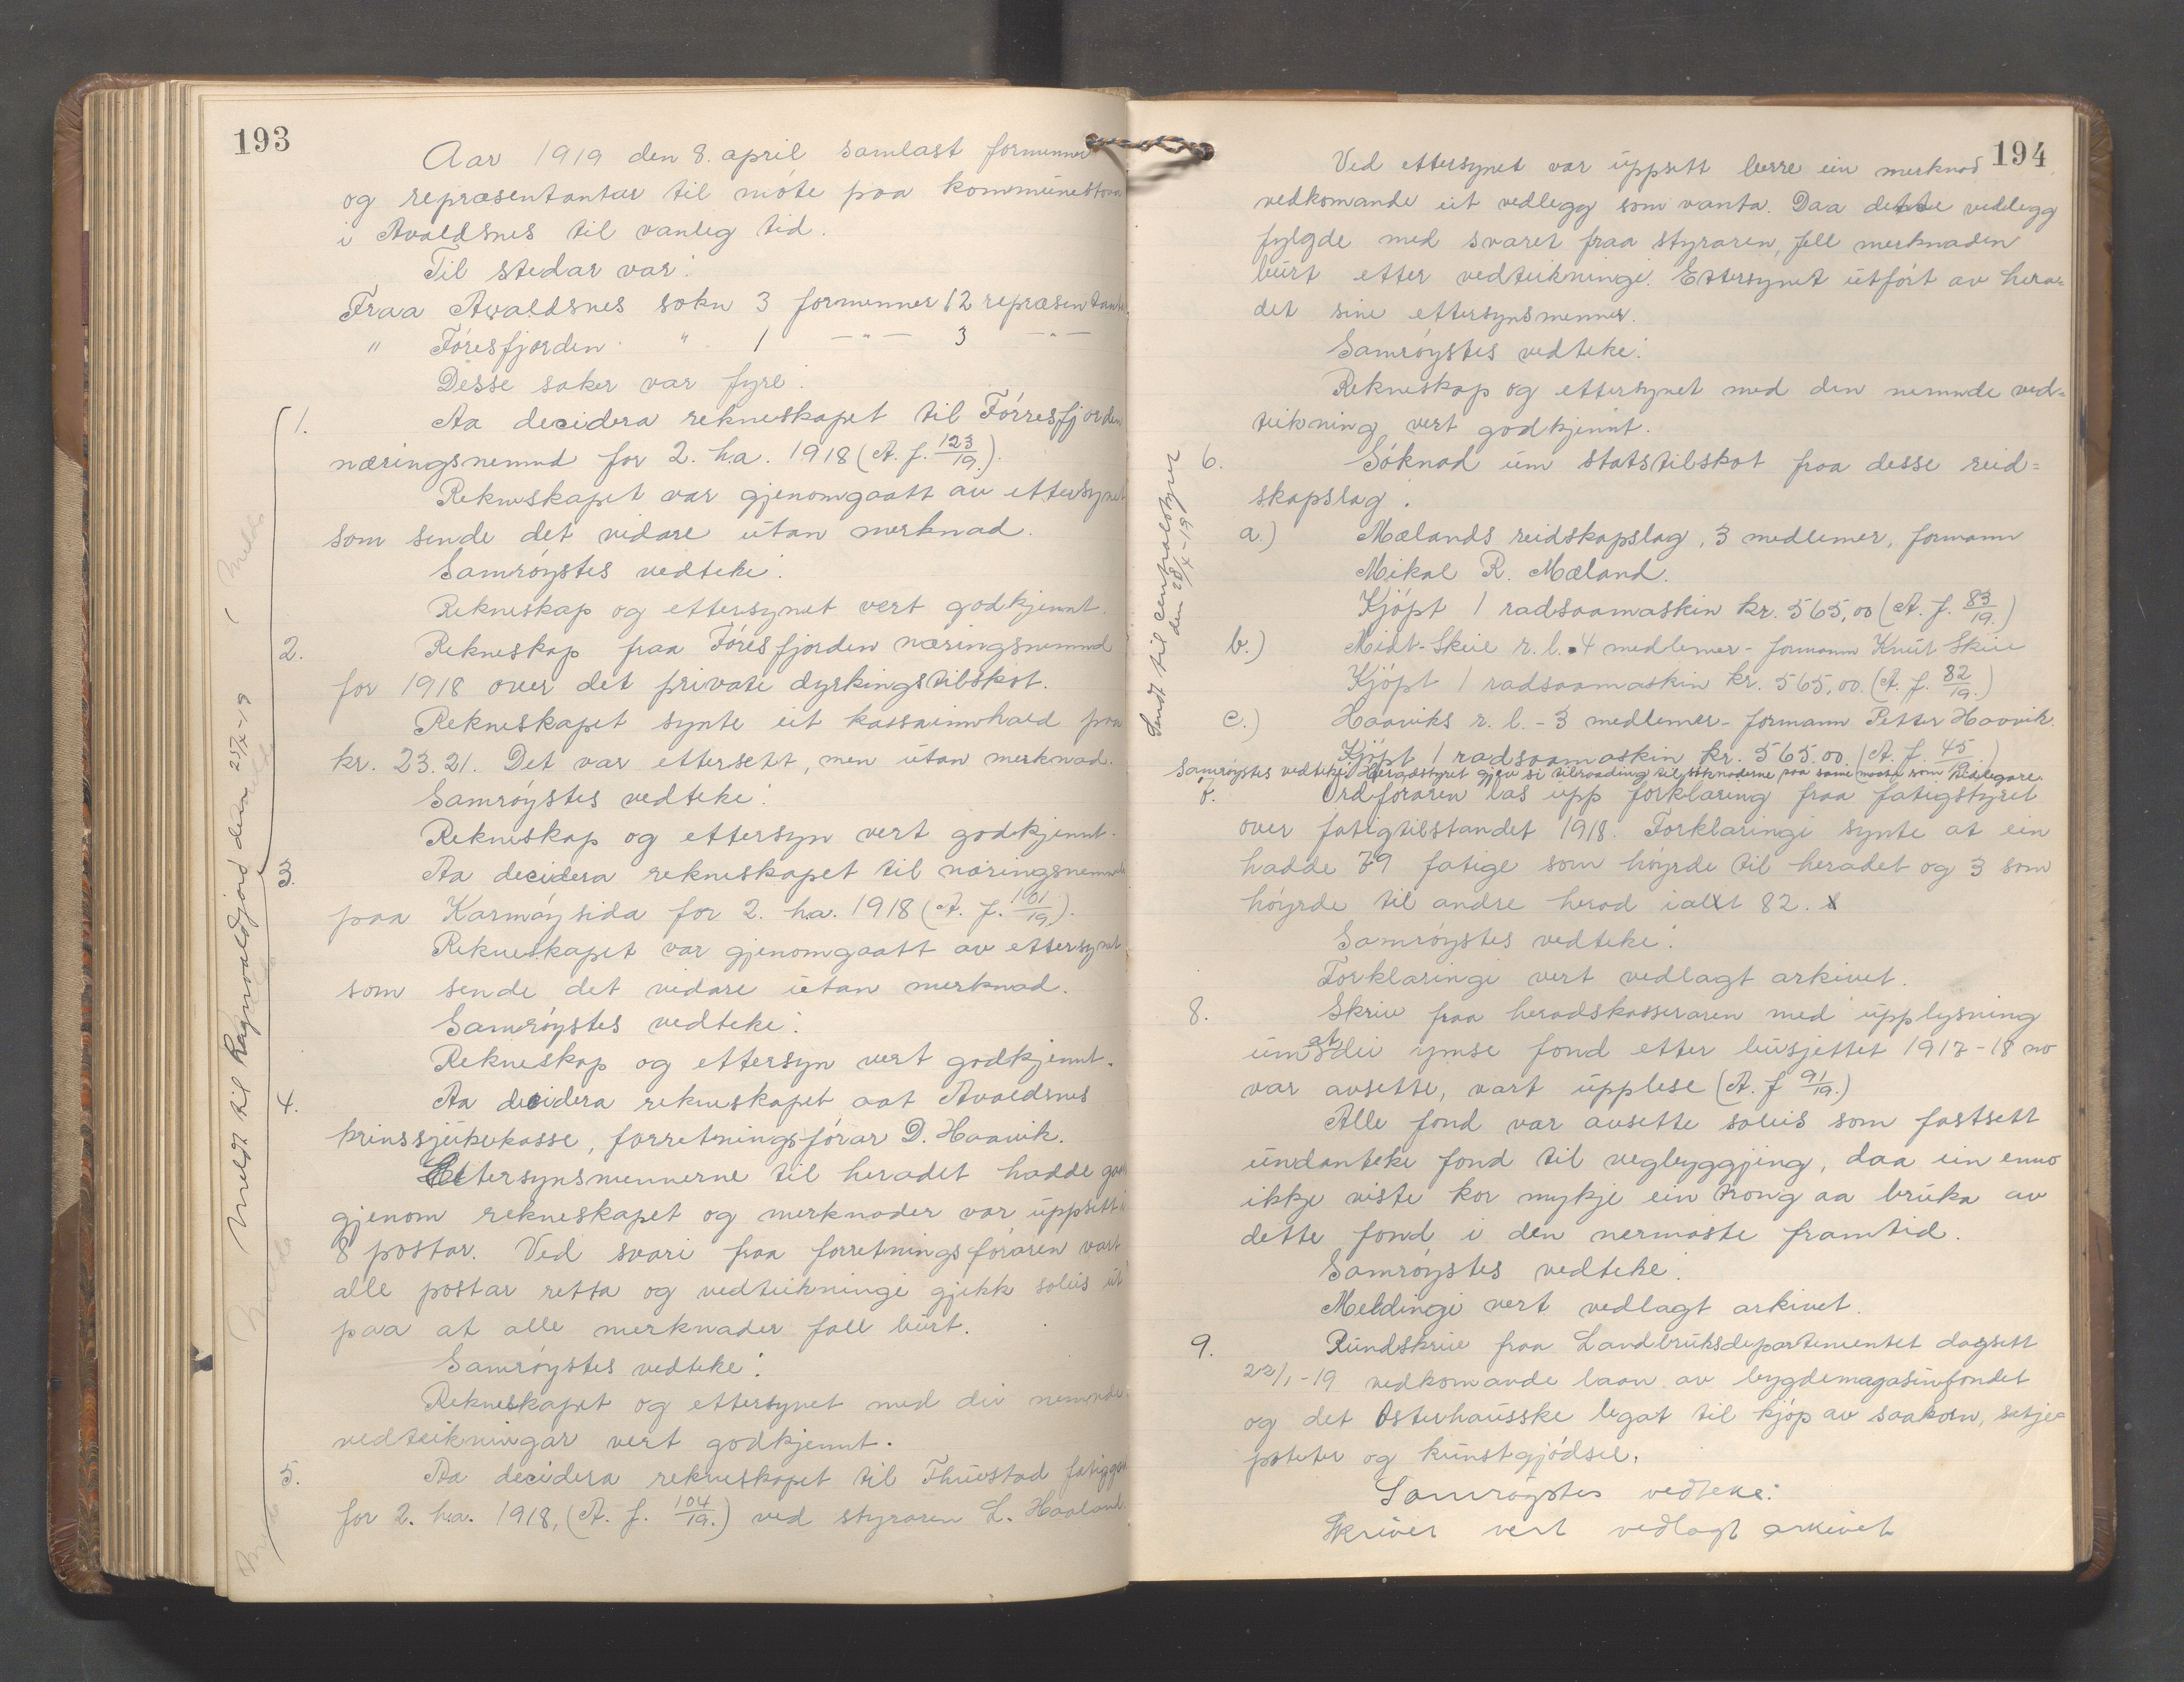 193
Aar 1919 den 8. april samlast formenner
og repræsentantar til móte paa kommunestova
i Avaldsnes til vanleg tid.
Til stedar var:
Fraa Avaldsnes sokn 3 formenner 12 repræsentantar
" Fóresfjorden " 1 -"- 3 -"-
Desse saker var fyre:
1. Aa decidera rekneskapet til Fórresfjorden
næringsnemnd for 2. h.a. 1918 (A. f. 123/19.).
Rekneskapet var gjenomgaatt av ettersynet
som sende det vidare utan merknad.
Samróystes vedteke:
Rekneskap og ettersynet vert godkjennt.
2. Rekneskap fraa Fóresfjorden næringsnemnd
for 1918 over det private dyrkingstilskot.
Rekneskapet synte eit kassainnhald paa
kr. 23.21. Det var ettersett, men utan merknad.
Samróystes vedteke:
Rekneskap og ettersyn vert godkjennt.
3. Aa decidera rekneskapet til næringsnemndi
paa Karmóysida for 2. h.a. 1918 (A. f. 101/19.).
Rekneskapet var gjenomgaatt av ettersynet
som sende det vidare utan merknad.
Samróystes vedteke:
Rekneskap og ettersyn vert godkjennt.
4. Aa decidera rekneskapet aat Avaldsnes
krinssjukekasse, forretningsfórar D. Haavik.
Ettersynsmennerne til heradet hadde gaatt
gjenom rekneskapet og merknader var uppsett i
8 postar. Ved svari fraa forretningsfóraren vart
alle postar retta og vedteikningi gjekk soleis ut
paa at alle merknader fall burt.
Samróystes vedteke:
Rekneskapet og ettersynet med dei nemnde
vedteikningar vert godkjennt.
5. Aa decidera rekneskapet til Thuestad fatiggard
for 2. h.a. 1918, (A. f. 104/19.) ved styraren L. Haaland.
Meldt til Ragnvaldjord den 25/4-19
194
Ved ettersynet var uppsett berre ein merknad
vedkomande eit vedlegg som vanta. Daa dette vedlegg
fylgde med svaret fraa styraren, fell merknaden
burt etter vedteikningi. Ettersynet utfórt av hera=
det sine ettersynsmenner.
Samróystes vedteke:
Rekneskap og ettersynet med den nemnde ved=
teikning vert godkjennt.
6. Sóknad um statstilskot fraa desse reid=
skapslag:
a.) Mælands reidskapslag, 3 medlemer, formann
Mikal R. Mæland.
Kjópt 1 radsaamaskin kr. 565,00 (A. f. 83/19.)
b.) Midt-Skeie r. l. 4 medlemer - formann Knut Skeie
Kjópt 1 radsaamaskin kr. 565,00. (A. f. 82/19.)
c.) Haaviks r. l. - 3 medlemer - formann Petter Haavik.
Kjópt 1 radsaamaskin kr. 565.00. (A. f. 45/19.)
Samróystes vedteke: Heradstyret gjev si tilraading til sóknaderne paa same maate som tidlegare.
Sendt til centralstyret
den 28/4-19
Ordfóraren las upp forklaring fraa fatigstyret
over fatigtilstandet 1918. Forklaringi synte at ein
hadde 79 fatige som hóyrde til heradet og 3 som
hóyrde til andre herad ialt 82.
Samróystes vedteke:
Forklaringi vert vedlagt arkivet.
8. Skriv fraa heradskasseraren med upplysning
um at dei ymse fond etter busjettet 1917-18 no
var avsette, vart upplese (A. f 91/19.)
Alle fond var avsette soleis som fastsett
undanteke fond til vegbyggjing, daa ein enno
ikkje viste kor mykje ein trong aa bruka av
dette fond i den nermaste framtid.
Samróystes vedteke:
Meldingi vert vedlagt arkivet.
9. Rundskriv fraa Landbruksdepartementet dagsett
22/1-19 vedkomande laan av bygdemagasinfondet
og det Osterhausske legat til kjóp av saakorn, setje=
poteter og kunstgjódsel.
Samróystes vedteke:
Skrivet vert vedlagt arkivet